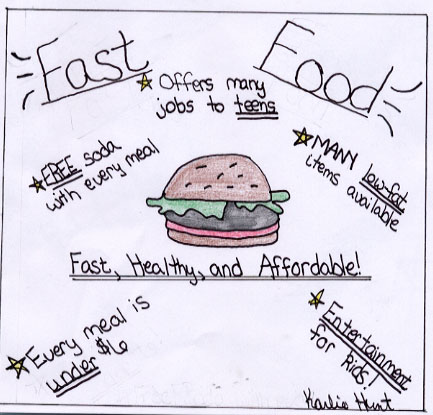 Fast Food
Offers many
jobs to teens
FREE soda
with every meal
MANY low-fat
items available
Fast, Healthy, and Affordable!
Every meal is
under $6
Entertainment
for kids!
Karlie Hunt